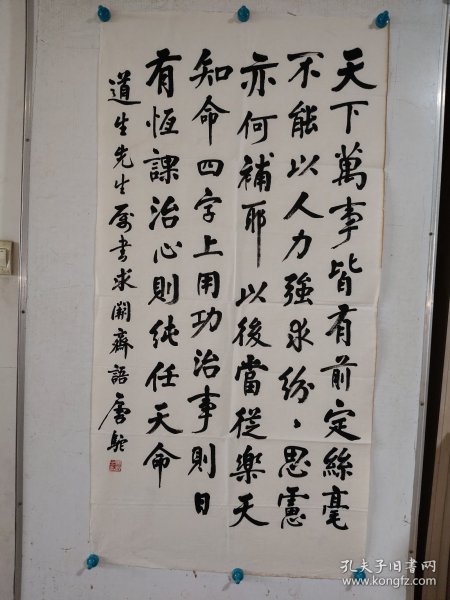 天下萬事皆有前定絲毫
不能以人力強求紛々思慮
亦何補耶以後當從樂天
知命四字上用功治事則日
有恆課治心則純任天命
道生先生属書求闕齋語唐駝
孔夫子旧书网
www.kongfz.com